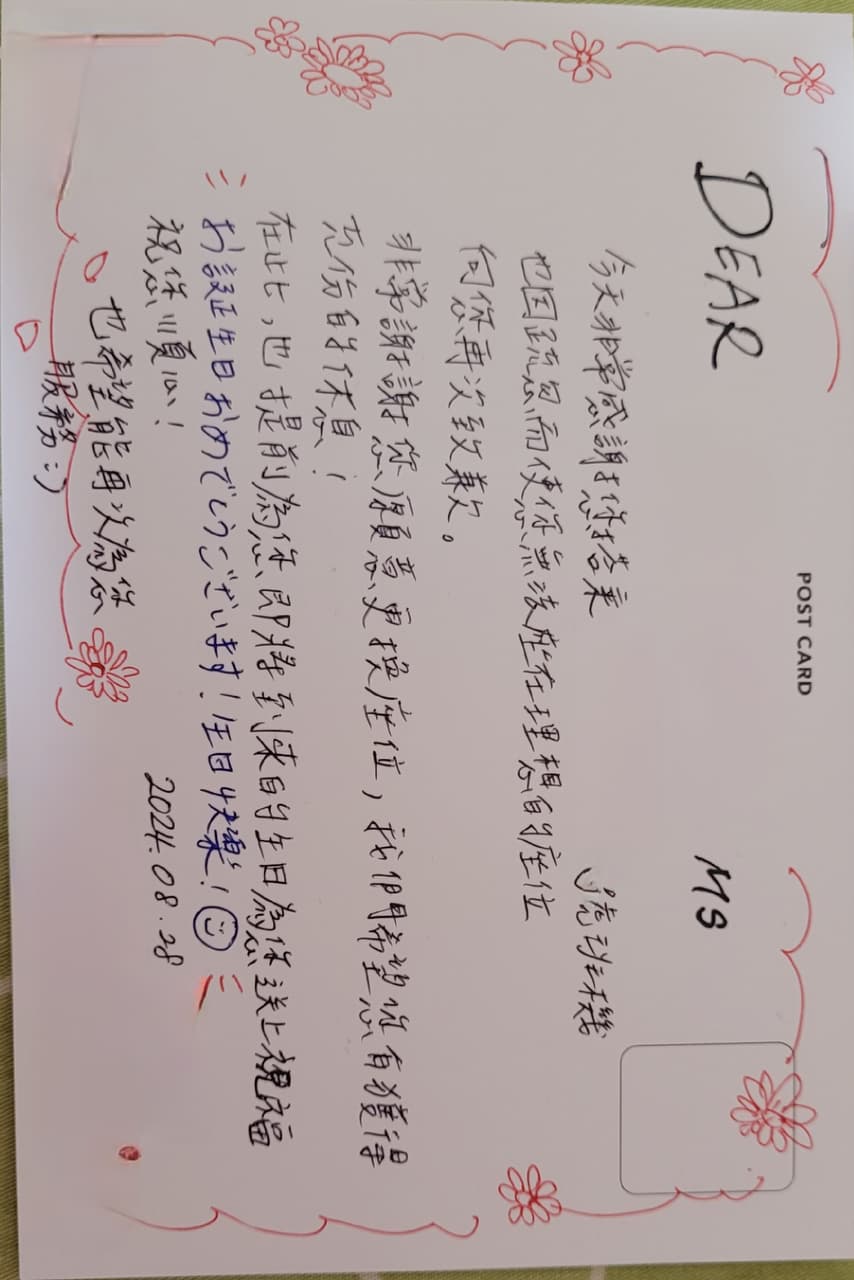 POST CARD
DEAR MS
今天非常感謝您搭乘 號班機
也因疏忽而使您無法坐在理想的座位
向您再次致歉。
非常謝謝您願意更換座位，我們希望您有獲得
充份的休息！
在此，也提前為您即將到來的生日為您送上祝福
お誕生日おめでとうございます！生日快樂！
祝您順心！ 2024.08.28
也希望能再次為您
服務:)